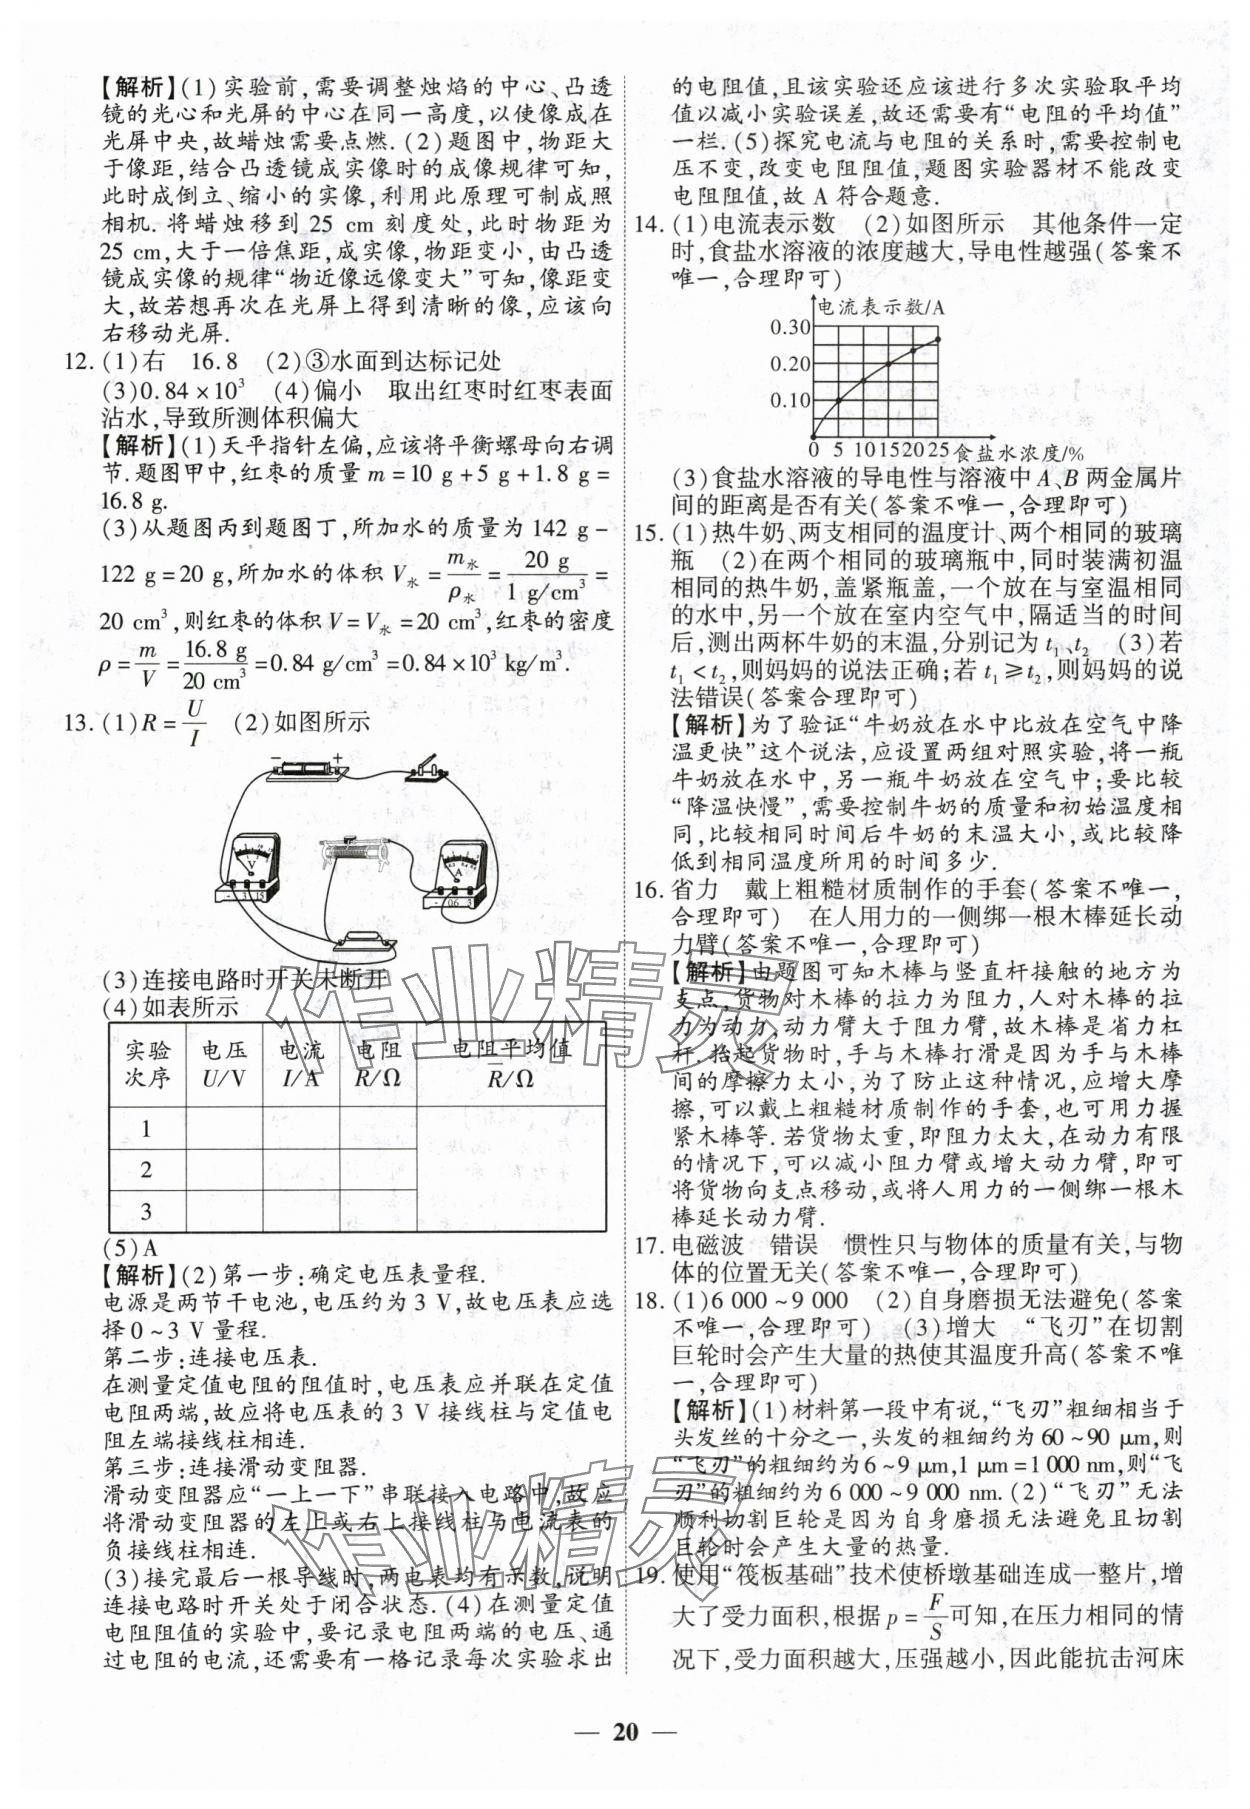 【解析】(1)实验前,需要调整烛焰的中心、凸透
镜的光心和光屏的中心在同一高度,以使像成在
光屏中央,故蜡烛需要点燃.(2)题图中,物距大
于像距,结合凸透镜成实像时的成像规律可知,
此时成倒立、缩小的实像,利用此原理可制成照
相机.将蜡烛移到 25 cm 刻度处,此时物距为
25 cm,大于一倍焦距,成实像,物距变小,由凸透
镜成实像的规律“物近像远像变大”可知,像距变
大,故若想再次在光屏上得到清晰的像,应该向
右移动光屏.
12. (1)右 16.8 (2)③水面到达标记处
(3)0.84×10³ (4)偏小 取出红枣时红枣表面
沾水,导致所测体积偏大
【解析】(1)天平指针左偏,应该将平衡螺母向右调
节.题图甲中,红枣的质量 m=10 g+5 g+1.8 g=
16.8 g.
(3)从题图丙到题图丁,所加水的质量为 142 g-
122 g=20 g,所加水的体积 V水=m水/ρ水=20 g/1 g/cm³=
20 cm³,则红枣的体积 V=V水=20 cm³,红枣的密度
ρ=m/V=16.8 g/20 cm³=0.84 g/cm³=0.84×10³ kg/m³.
13. (1)R=U/I (2)如图所示
- +
V A
- 3 15 - 0.6 3
(3)连接电路时开关未断开
(4)如表所示
实验次序 电压U/V 电流I/A 电阻R/Ω 电阻平均值R̄/Ω
1
2
3
(5)A
【解析】(2)第一步:确定电压表量程.
电源是两节干电池,电压约为 3 V,故电压表应选
择 0~3 V 量程.
第二步:连接电压表.
在测量定值电阻的阻值时,电压表应并联在定值
电阻两端,故应将电压表的 3 V 接线柱与定值电
阻左端接线柱相连.
第三步:连接滑动变阻器.
滑动变阻器应“一上一下”串联接入电路中,故应
将滑动变阻器的左上或右上接线柱与电流表的
负接线柱相连.
(3)接完最后一根导线时,两电表均有示数,说明
连接电路时开关处于闭合状态.(4)在测量定值
电阻阻值的实验中,要记录电阻两端的电压、通
过电阻的电流,还需要有一格记录每次实验求出
的电阻值,且该实验还应该进行多次实验取平均
值以减小实验误差,故还需要有“电阻的平均值”
一栏.(5)探究电流与电阻的关系时,需要控制电
压不变,改变电阻阻值,题图实验器材不能改变
电阻阻值,故 A 符合题意.
14. (1)电流表示数 (2)如图所示 其他条件一定
时,食盐水溶液的浓度越大,导电性越强(答案不
唯一,合理即可)
电流表示数/A
0.30
0.20
0.10
0 5 10 15 20 25 食盐水浓度/%
(3)食盐水溶液的导电性与溶液中 A、B 两金属片
间的距离是否有关(答案不唯一,合理即可)
15. (1)热牛奶、两支相同的温度计、两个相同的玻璃
瓶 (2)在两个相同的玻璃瓶中,同时装满初温
相同的热牛奶,盖紧瓶盖,一个放在与室温相同
的水中,另一个放在室内空气中,隔适当的时间
后,测出两杯牛奶的末温,分别记为 t₁、t₂ (3)若
t₁<t₂,则妈妈的说法正确;若 t₁≥t₂,则妈妈的说
法错误(答案合理即可)
【解析】为了验证“牛奶放在水中比放在空气中降
温更快”这个说法,应设置两组对照实验,将一瓶
牛奶放在水中,另一瓶牛奶放在空气中;要比较
“降温快慢”,需要控制牛奶的质量和初始温度相
同,比较相同时间后牛奶的末温大小,或比较降
低到相同温度所用的时间多少.
16. 省力 戴上粗糙材质制作的手套(答案不唯一,
合理即可) 在人用力的一侧绑一根木棒延长动
力臂(答案不唯一,合理即可)
【解析】由题图可知木棒与竖直杆接触的地方为
支点,货物对木棒的拉力为阻力,人对木棒的拉
力为动力,动力臂大于阻力臂,故木棒是省力杠
杆.抬起货物时,手与木棒打滑是因为手与木棒
间的摩擦力太小,为了防止这种情况,应增大摩
擦,可以戴上粗糙材质制作的手套,也可用力握
紧木棒等.若货物太重,即阻力太大,在动力有限
的情况下,可以减小阻力臂或增大动力臂,即可
将货物向支点移动,或将人用力的一侧绑一根木
棒延长动力臂.
17. 电磁波 错误 惯性只与物体的质量有关,与物
体的位置无关(答案不唯一,合理即可)
18. (1)6 000~9 000 (2)自身磨损无法避免(答案
不唯一,合理即可) (3)增大 “飞刃”在切割
巨轮时会产生大量的热使其温度升高(答案不唯
一,合理即可)
【解析】(1)材料第一段中有说,“飞刃”粗细相当于
头发丝的十分之一,头发的粗细约为 60~90 μm,则
“飞刃”的粗细约为 6~9 μm,1 μm=1 000 nm,则“飞
刃”的粗细约为 6 000~9 000 nm.(2)“飞刃”无法
顺利切割巨轮是因为自身磨损无法避免且切割
巨轮时会产生大量的热量.
19. 使用“筏板基础”技术使桥墩基础连成一整片,增
大了受力面积,根据 p=F/S可知,在压力相同的情
况下,受力面积越大,压强越小,因此能抗击河床
作业精灵
作业精灵
— 20 —